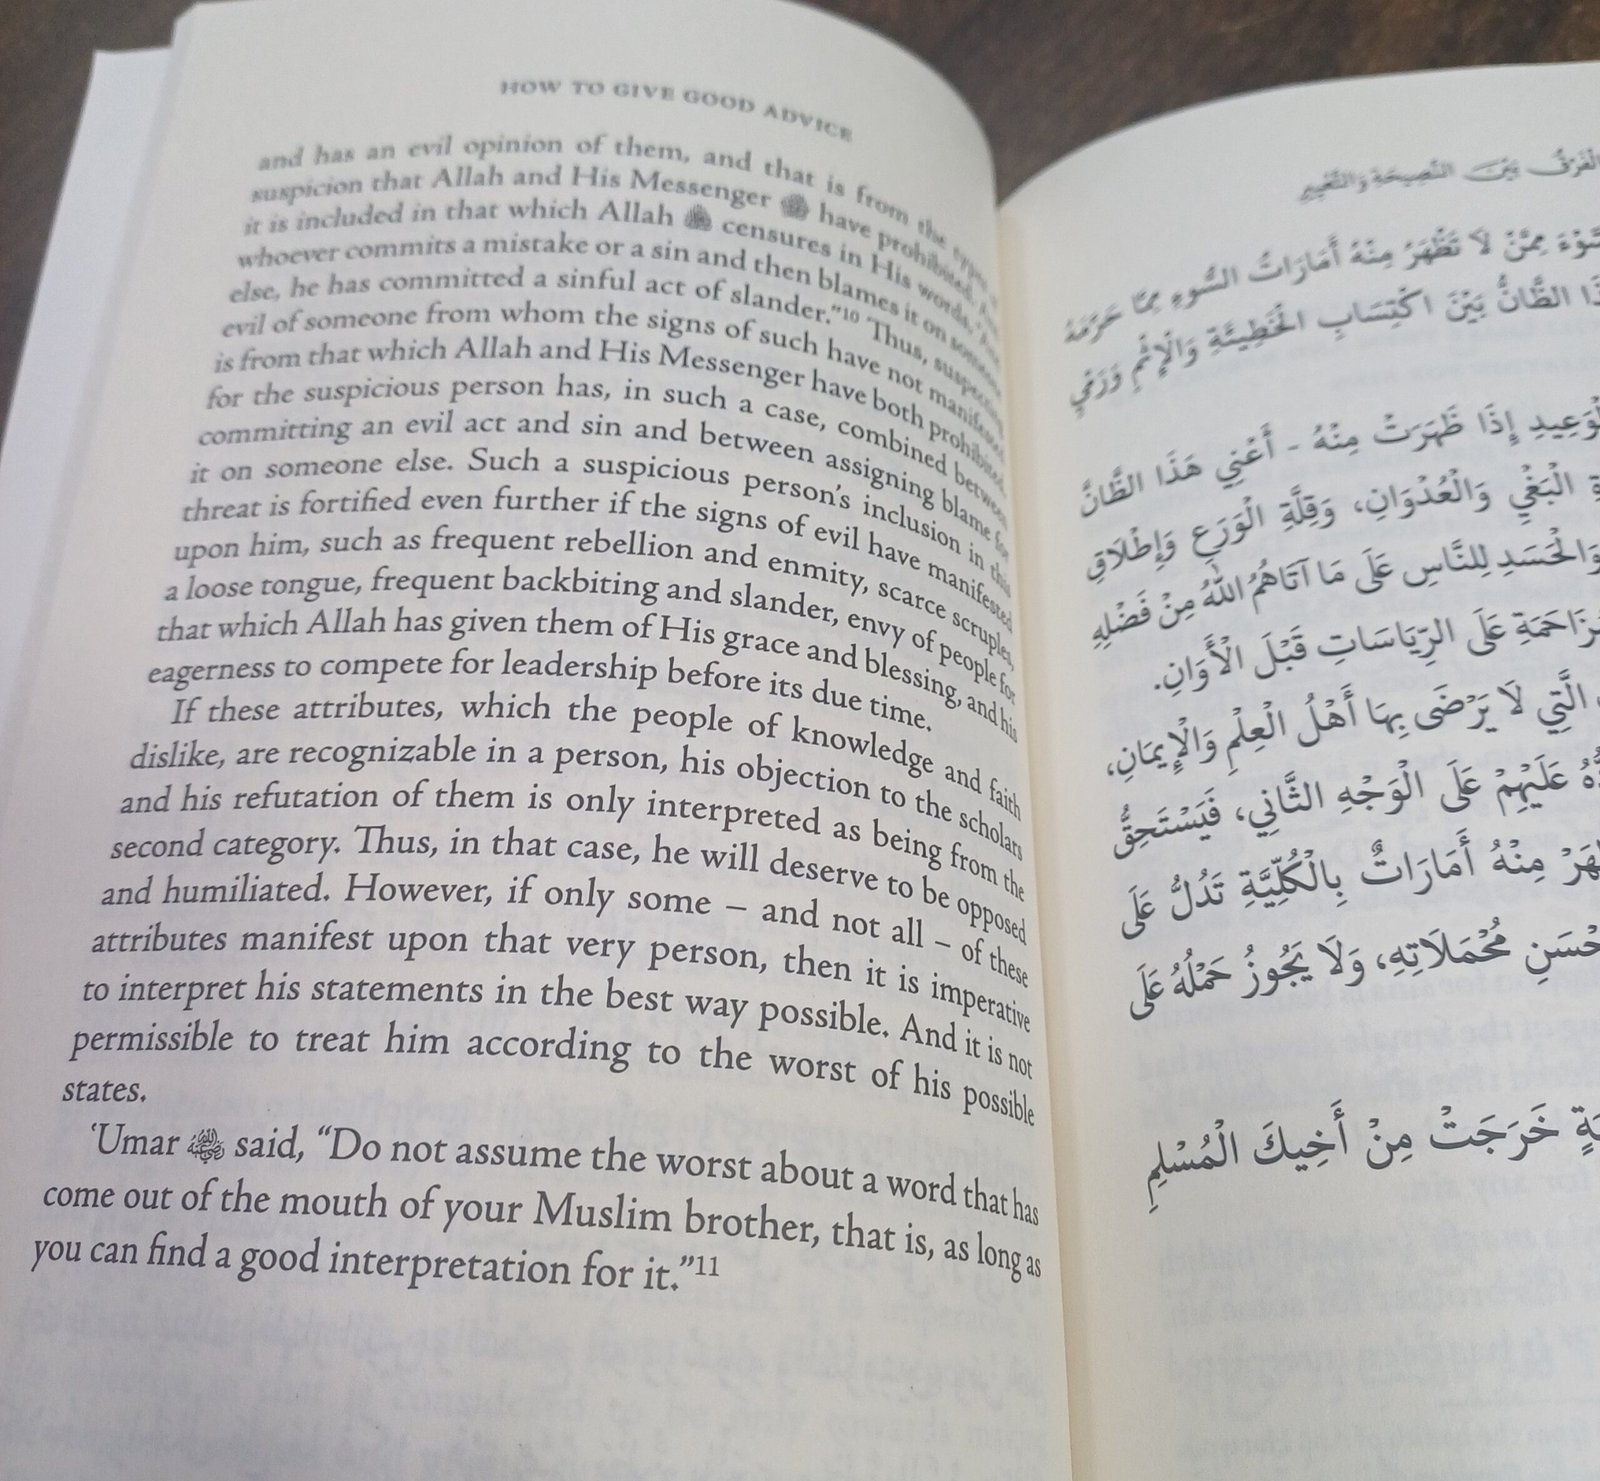 HOW TO GIVE GOOD ADVICE
and has an evil opinion of them, and that is from the
suspicion that Allah and His Messenger ﷺ have prohibited.
it is included in that which Allah censures in His words,
whoever commits a mistake or a sin and then blames it on someone
else, he has committed a sinful act of slander.”10 Thus, suspecting
evil of someone from whom the signs of such have not manifested
is from that which Allah and His Messenger have both prohibited,
for the suspicious person has, in such a case, combined between
committing an evil act and sin and between assigning blame for
it on someone else. Such a suspicious person’s inclusion in this
threat is fortified even further if the signs of evil have manifested
upon him, such as frequent rebellion and enmity, scarce scruples,
a loose tongue, frequent backbiting and slander, envy of people for
that which Allah has given them of His grace and blessing, and his
eagerness to compete for leadership before its due time.
If these attributes, which the people of knowledge and faith
dislike, are recognizable in a person, his objection to the scholars
and his refutation of them is only interpreted as being from the
second category. Thus, in that case, he will deserve to be opposed
and humiliated. However, if only some – and not all – of these
attributes manifest upon that very person, then it is imperative
to interpret his statements in the best way possible. And it is not
permissible to treat him according to the worst of his possible
states.
‘Umar said, “Do not assume the worst about a word that has
come out of the mouth of your Muslim brother, that is, as long as
you can find a good interpretation for it.”11
الْفَرْقُ بَيْنَ النَّصِيحَةِ وَالتَّعْيِيرِ
مِمَّنْ لَا تَظْهَرُ مِنْهُ أَمَارَاتُ السُّوءِ مِمَّا حَرَّمَهُ
الظَّانُّ بَيْنَ اكْتِسَابِ الْخَطِيئَةِ وَالْإِثْمِ وَرَمْيِ
إِذَا ظَهَرَتْ مِنْهُ - أَعْنِي هَذَا الظَّانَّ
الْبَغْيِ وَالْعُدْوَانِ، وَقِلَّةِ الْوَرَعِ وَإِطْلَاقِ
وَالْحَسَدِ لِلنَّاسِ عَلَى مَا آتَاهُمُ اللهُ مِنْ فَضْلِهِ
عَلَى الرِّيَاسَاتِ قَبْلَ الْأَوَانِ.
الَّتِي لَا يَرْضَى بِهَا أَهْلُ الْعِلْمِ وَالْإِيمَانِ،
عَلَيْهِمْ عَلَى الْوَجْهِ الثَّانِي، فَيَسْتَحِقُّ
مِنْهُ أَمَارَاتٌ بِالْكُلِّيَّةِ تَدُلُّ عَلَى
مُحْمَلَاتِهِ، وَلَا يَجُوزُ حَمْلُهُ عَلَى
خَرَجَتْ مِنْ أَخِيكَ الْمُسْلِمِ